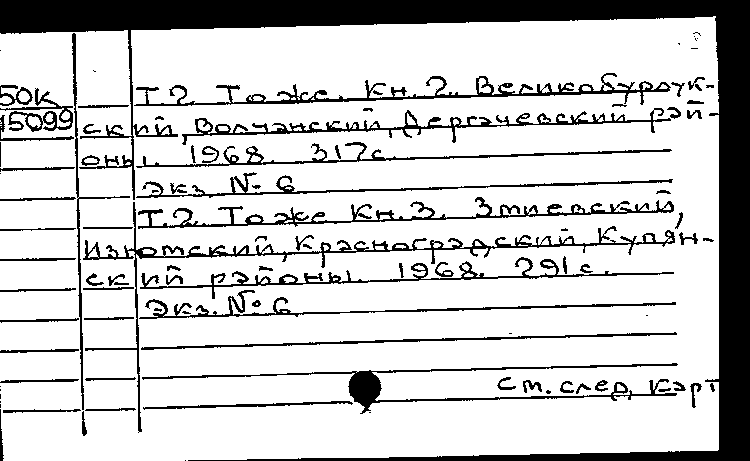 50К Т.2 То же. Кн. 2. Великобурлук-
15099 ский, Волчанский, Дергачевский рай-
оны. 1968. 317с.
Экз. № 6
Т.2. То же Кн. 3. Змиевский,
Изюмский, Красноградский, Купян-
ский районы. 1968. 291с.
Экз. № 6
См. след. карт